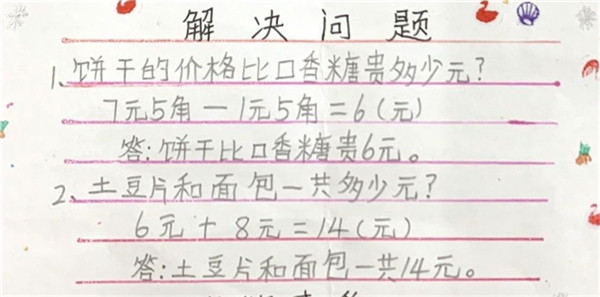 解决问题
1、饼干的价格比口香糖贵多少元?
7元5角－1元5角=6(元)
答:饼干比口香糖贵6元。
2、土豆片和面包一共多少元?
6元+8元=14(元)
答:土豆片和面包一共14元。